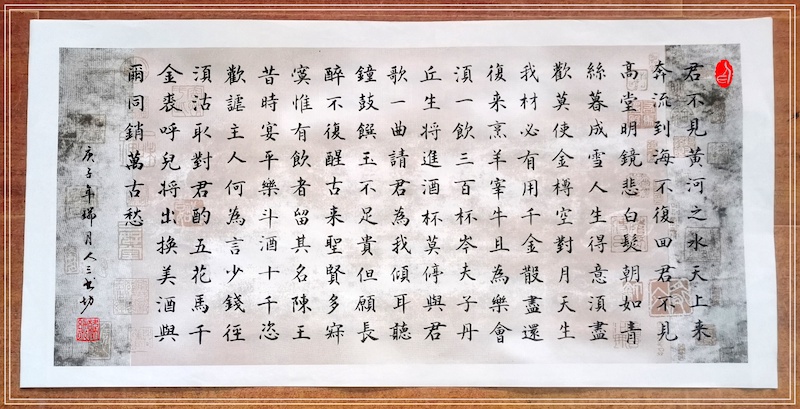 君不見黃河之水天上来
奔流到海不復回君不見
高堂明鏡悲白髮朝如青
絲暮成雪人生得意湏盡
歡莫使金樽空對月天生
我材必有用千金散盡還
復来烹羊宰牛且為樂會
湏一飲三百杯岑夫子丹
丘生将進酒杯莫停與君
歌一曲請君為我傾耳聽
鐘鼓饌玉不足貴但願長
醉不復醒古来聖賢多寂
寞惟有飲者留其名陳王
昔時宴平樂斗酒十千恣
歡謔主人何為言少錢徑
湏沽取對君酌五花馬千
金裘呼兒将出換美酒與
爾同銷萬古愁
庚子年瑞月人三书坊